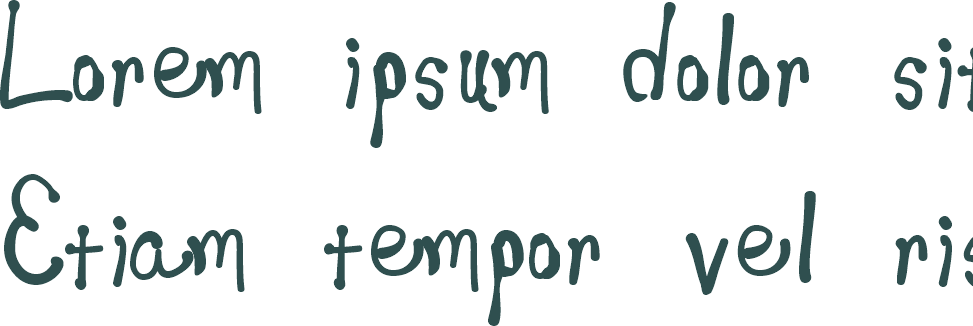 Lorem ipsum dolor sit
Etiam tempor vel ris